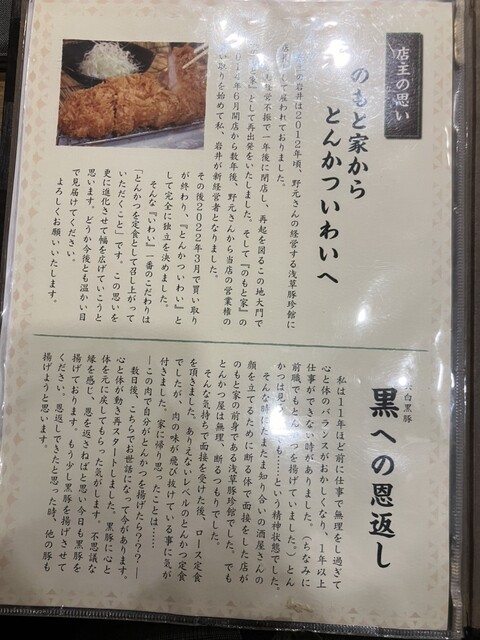 店主の思い
のもと家から
とんかついわいへ
店主の岩井は2012年頃、野元さんの経営する浅草豚珍館に
して雇われておりました。
も経営不振で一年後に閉店し、再起を図るこの地大門で
家』として再出発をいたしました。そして『のもと家』の
6月開店から数年後、野元さんから当店の営業権の
い取りを始めて私、岩井が新経営者となりました。
その後2022年3月で買い取り
が終わり、『とんかついわい』と
して完全に独立を決めました。
そんな『いわい』一番のこだわりは
「とんかつを定食として召し上がって
いただくこと」です。この思いを
更に進化させて幅を広げていこうと
思います。どうか今後とも温かい目
で見届けてください。
よろしくお願いいたします。
白黒豚
黒への恩返し
私は11年ほど前に仕事で無理をし過ぎて
心と体のバランスがおかしくなり、1年以上
仕事ができない時がありました。（ちなみに
前職でもとんかつを揚げていました。）とん
かつは見
も……という精神状態でした。
そんな時にたまたま知り合いの酒屋さんの
顔を立てるために断る体で面接をした店が
のもと家の前身である浅草豚珍館でした。でも
とんかつ屋は無理、断るつもりでした。
そんな気持ちで面接を受けた後、ロース定食
を頂きました。ありえないレベルのとんかつ定食
でしたが、肉の味が飛び抜けている事に気が
付きました。家に帰り思ったことは……
―この肉で自分がとんかつを揚げたら？？？―
数日後、こちらでお世話になって今があります。
心と体が動き再スタートしました。黒豚に心と
体を元に戻してもらった気がします。不思議な
縁を感じ、恩を返さねばと思い今日も黒豚を
揚げております。もう少し黒豚を揚げさせて
ください。恩返しできたと思った時、他の豚も
揚げようと思います。